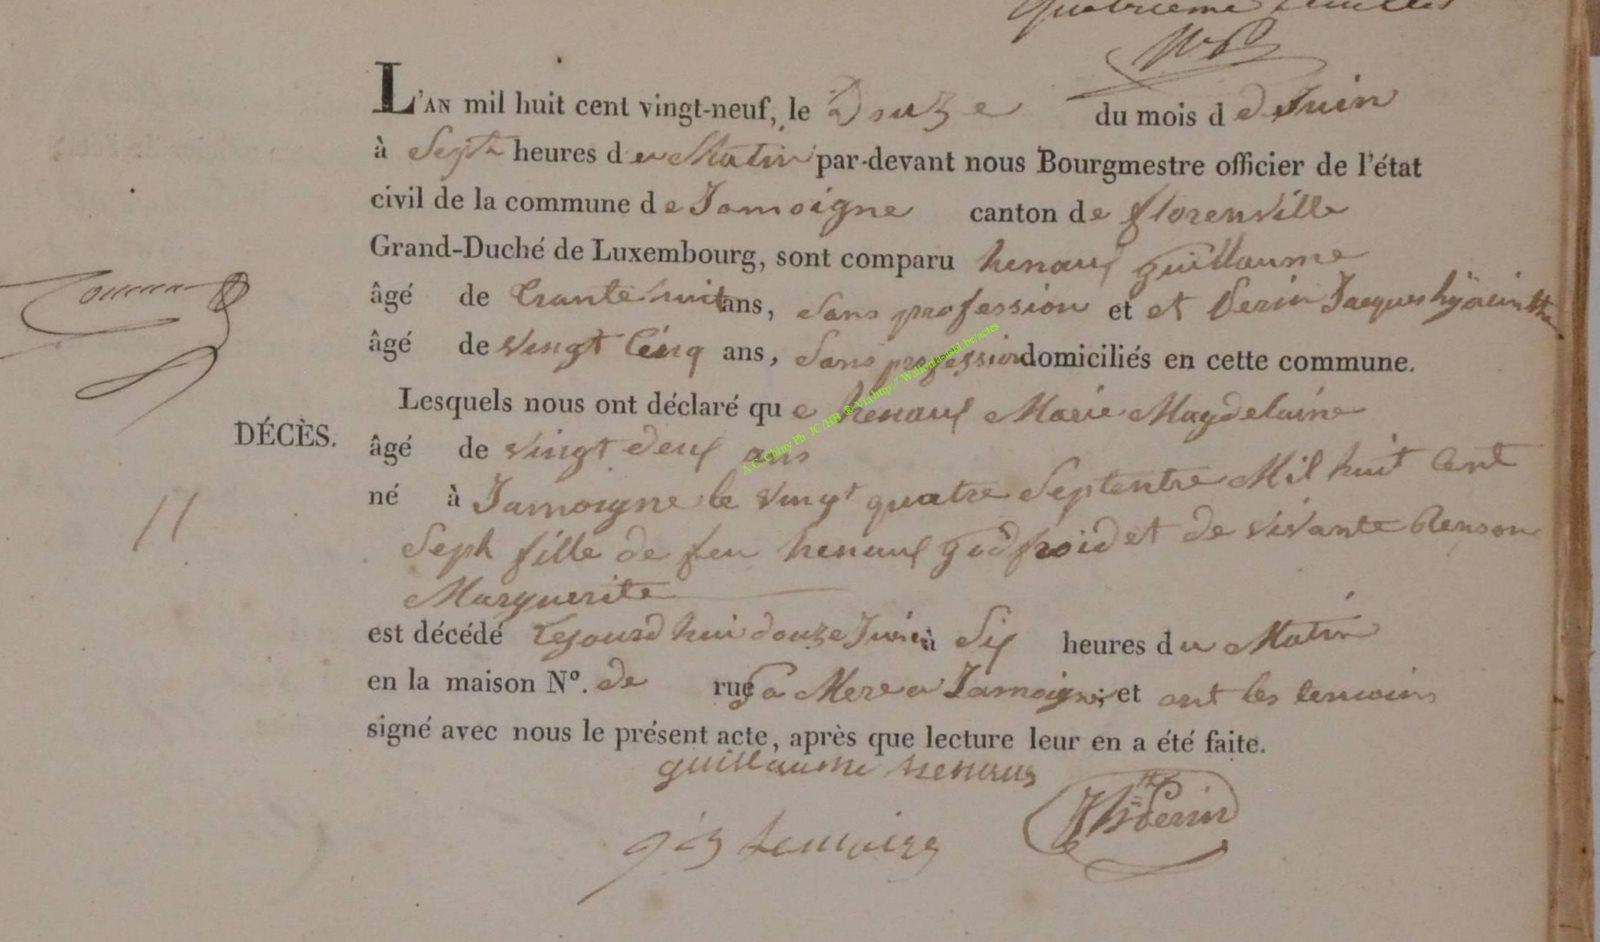 Quatrieme feuillet
L'AN mil huit cent vingt-neuf, le Douze du mois de Juin
à Sept heures du Matin par-devant nous Bourgmestre officier de l'état
civil de la commune de Jamoigne canton de florenville
Grand-Duché de Luxembourg, sont comparu henaux guillaume
âgé de trante huit ans, Sans profession et et Perin Jacques hyacinthe
âgé de vingt Cinq ans, Sans profession domiciliés en cette commune.
Lesquels nous ont déclaré que henaux Marie Magdelaine
DÉCÈS.
âgé de vingt deux ans
né à Jamoigne le vingt quatre Septembre Mil huit Cent
11
Sept fille de feu henaux godfroid et de vivante Renson
Marguerite
est décédé cejourd'hui douze Juin à Six heures du Matin
en la maison N°. de rue sa Mere a Jamoigne; et ont les temoins
signé avec nous le présent acte, après que lecture leur en a été faite.
guillaume henaux
Perin
A.C. Chiny Ph. JC /HR ® Via http:// Wallonica